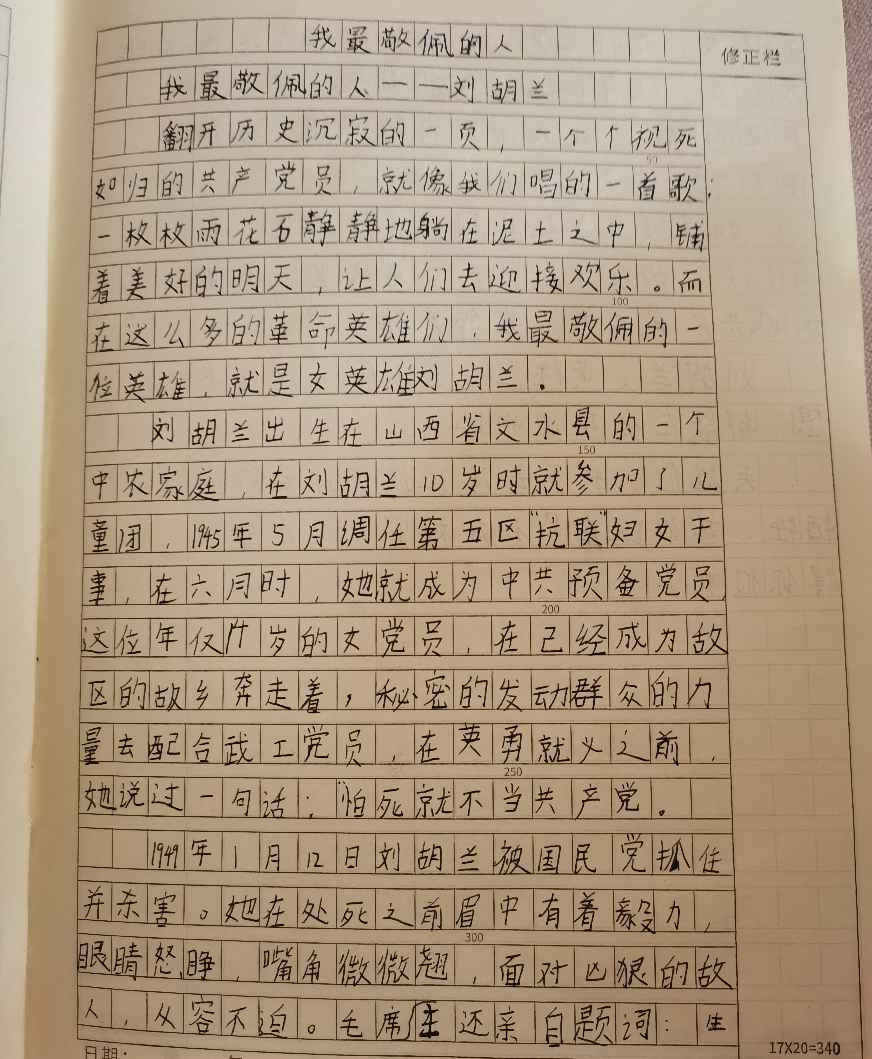 我最敬佩的人
修正栏
我最敬佩的人——刘胡兰
翻开历史沉寂的一页，一个个视死
50
如归的共产党员，就像我们唱的一首歌：
一枚枚雨花石静静地躺在泥土之中，铺
着美好的明天，让人们去迎接欢乐。而
100
在这么多的革命英雄们，我最敬佩的一
位英雄，就是女英雄刘胡兰。
刘胡兰出生在山西省文水县的一个
150
中农家庭，在刘胡兰10岁时就参加了儿
童团，1945年5月调任第五区"抗联"妇女干
事，在六月时，她就成为中共预备党员，
200
这位年仅14岁的女党员，在己经成为敌
区的故乡奔走着，秘密的发动群众的力
量去配合武工党员，在英勇就义之前，
250
她说过一句话："怕死就不当共产党。
1949年1月12日刘胡兰被国民党抓住
并杀害。她在处死之前眉中有着毅力，
300
眼睛怒睁，嘴角微微翘，面对凶狠的敌
人，从容不迫。毛席主还亲自题词：生
日期： 年
17X20=340